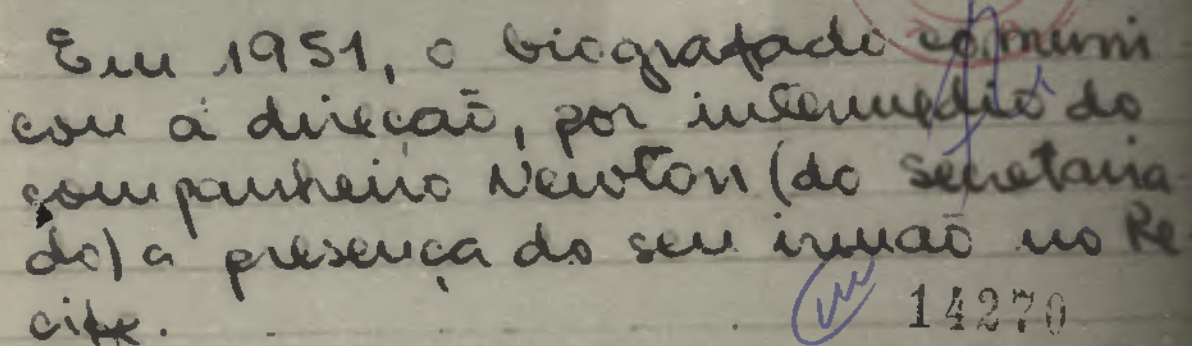 Em 1951, o biografado comuni
cou à direcaō, por intermedio do
companheiro Newton (do secretaria
do) a presença do seu irmaō no Re-
cife.
14270